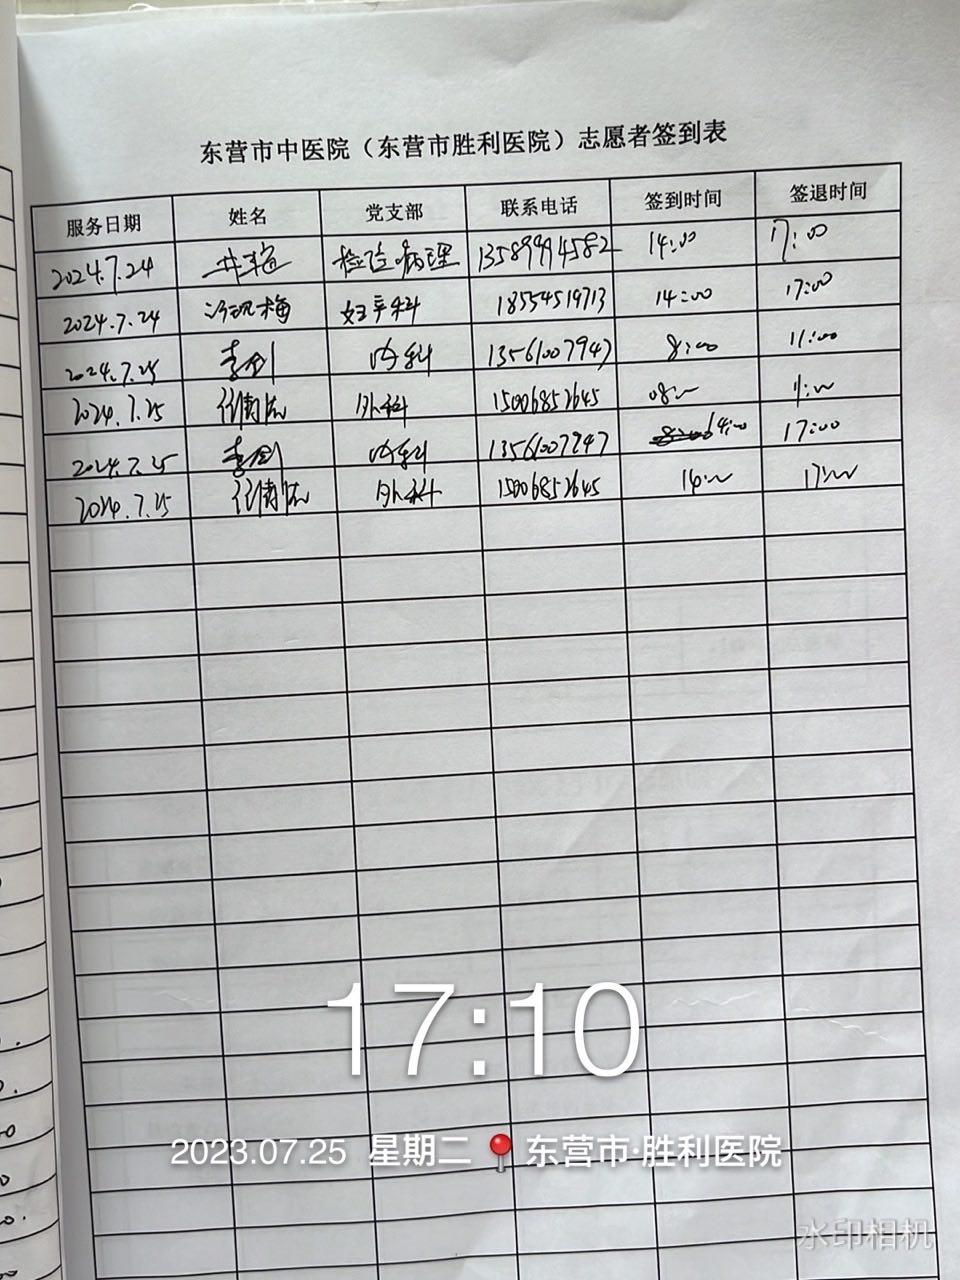 东营市中医院（东营市胜利医院）志愿者签到表
服务日期 姓名 党支部 联系电话 签到时间 签退时间
2024.7.24 检验病理 13589994582 14:00 17:00
2024.7.24 妇产科 18554519713 14:00 17:00
2024.7.25 李剑 内科 13561007947 8:00 11:00
2024.7.25 外科 15006852645 08:00 11:00
2024.7.25 李剑 内科 13561007947 14:00 17:00
2024.7.25 外科 15006852645 14:00 17:00
17:10
2023.07.25 星期二 东营市·胜利医院
水印相机